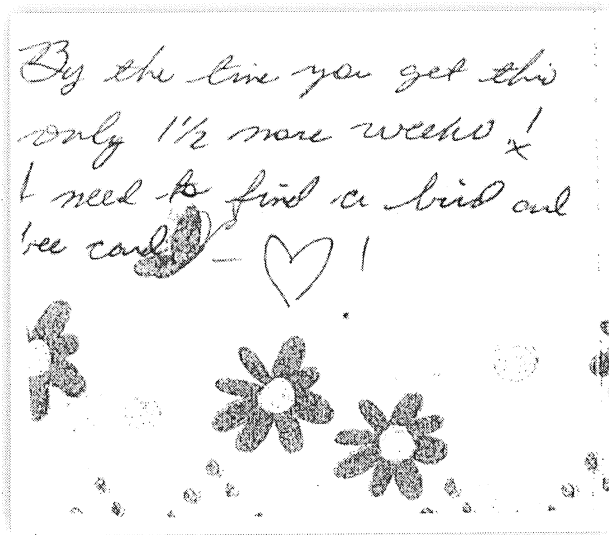 By the time you get this
only 1½ more weeks!
I need to find a bird and
bee card - ♡!